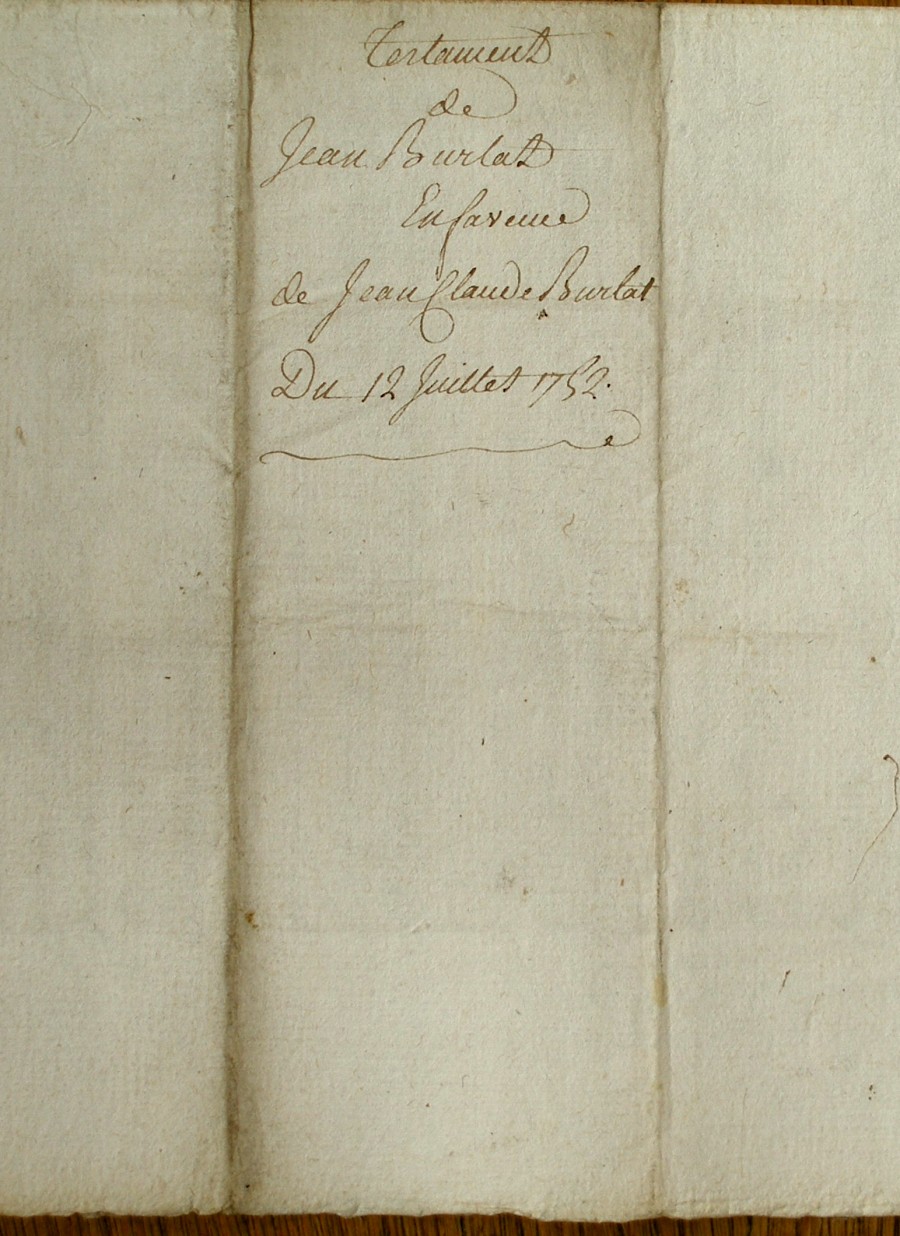 Testament
de
Jean Burlat
En faveur
de Jean Claude Burlat
Du 12 Juillet 1752.